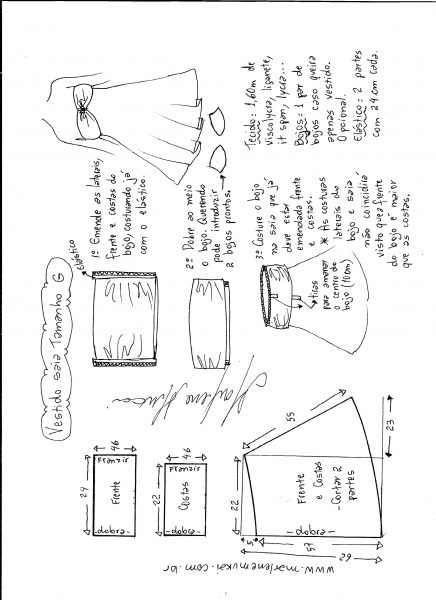 Vestido saia Tamanho G
elástico
1º Emende as laterais,
frente e costas do
bojo, costurando já
com o elástico.
2º Dobre ao meio
o bojo. Querendo
pode introduzir
2 bojos prontos.
3º Costure bojo
na saia que já
deve estar
emendada frente
e costas.
* As costuras
laterais do
bojo e saia
não coincidirá
visto que a frente
do bojo é maior
que as costas.
tiras
para amarrar
o centro do
bojo (10cm)
Tecido: 1,60m de
viscolycra, liganete,
it span, lycra...
Bojos: 1 par de
bojos caso queira
apenas vestido.
Opcional.
Elástico: 2 partes
com 24 cm cada.
46
24
Franzir
Frente
-dobra-
46
22
Franzir
Costas
-dobra-
55
22
23
Frente
e Costas
-Cortar 2
partes
-dobra-
5
57
62
www.marlenemukai.com.br
Marlene Mukai